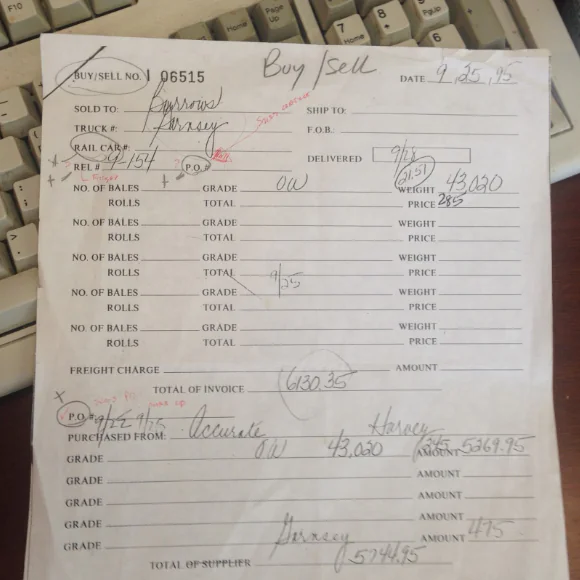 F10
Home
Page Up
7 Home
8
9 PgUp
4
BUY/SELL NO. 06515 Buy/Sell DATE 9, 25, 95
SOLD TO: Burrows SHIP TO:
TRUCK #: Garnsey F.O.B.
RAIL CAR#: DELIVERED 9/28
REL# 91154 P.O.#
NO. OF BALES GRADE OW 21.51 WEIGHT 43,020
ROLLS TOTAL PRICE 285
NO. OF BALES GRADE WEIGHT
ROLLS TOTAL PRICE
NO. OF BALES GRADE WEIGHT
ROLLS TOTAL 9/25 PRICE
NO. OF BALES GRADE WEIGHT
ROLLS TOTAL PRICE
NO. OF BALES GRADE WEIGHT
ROLLS TOTAL PRICE
FREIGHT CHARGE AMOUNT
TOTAL OF INVOICE 6130.35
P.O.# 9/22 9/25
PURCHASED FROM: Accurate Harvey
GRADE OW 43,020 245 AMOUNT 5269.95
GRADE AMOUNT
GRADE AMOUNT
GRADE AMOUNT
GRADE Garnsey AMOUNT 475
TOTAL OF SUPPLIER 5744.95